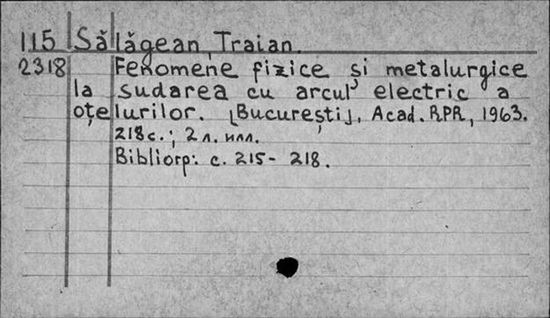 115 Sălăgean, Traian.
2318 Fenomene fizice și metalurgice
la sudarea cu arcul electric a
oțelurilor. [București], Acad. RPR, 1963.
218 с.; 2 л. илл.
Bibliogr: с. 215-218.